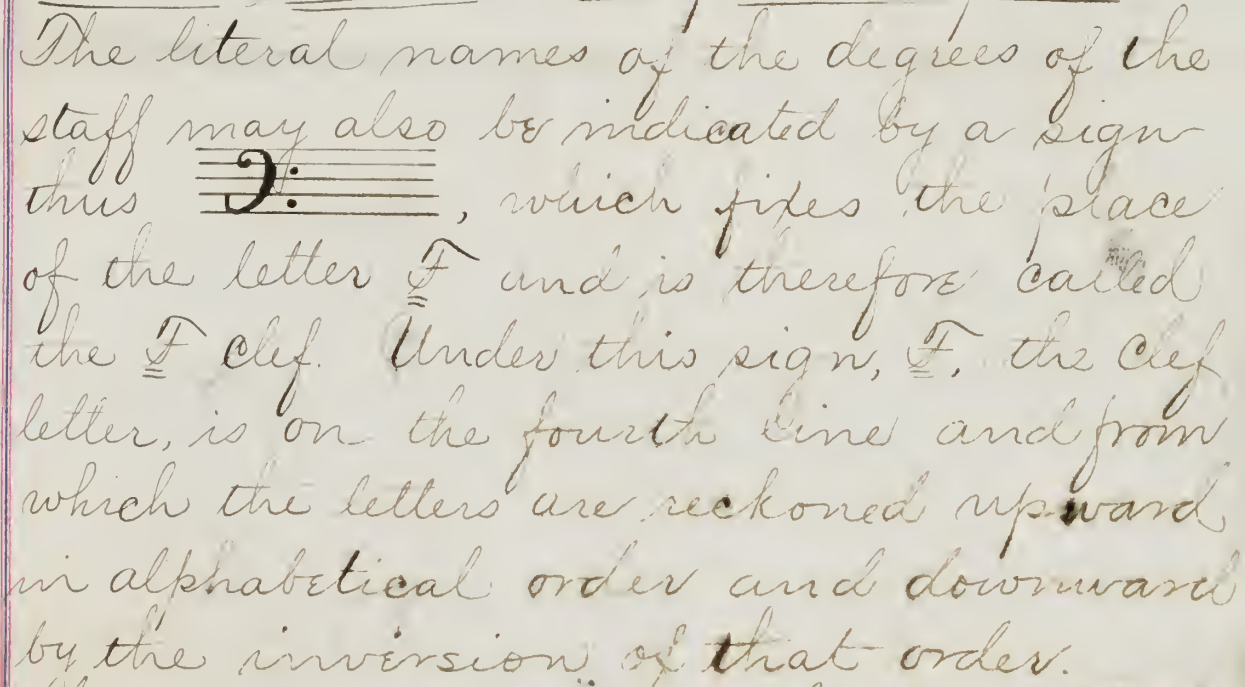 The literal names of the degrees of the
staff may also be indicated by a sign
thus , which fixes the place
of the letter F and is therefore called
the F clef. Under this sign, F, the clef
letter, is on the fourth line and from
which the letters are reckoned upward
in alphabetical order and downward
by the inversion of that order.